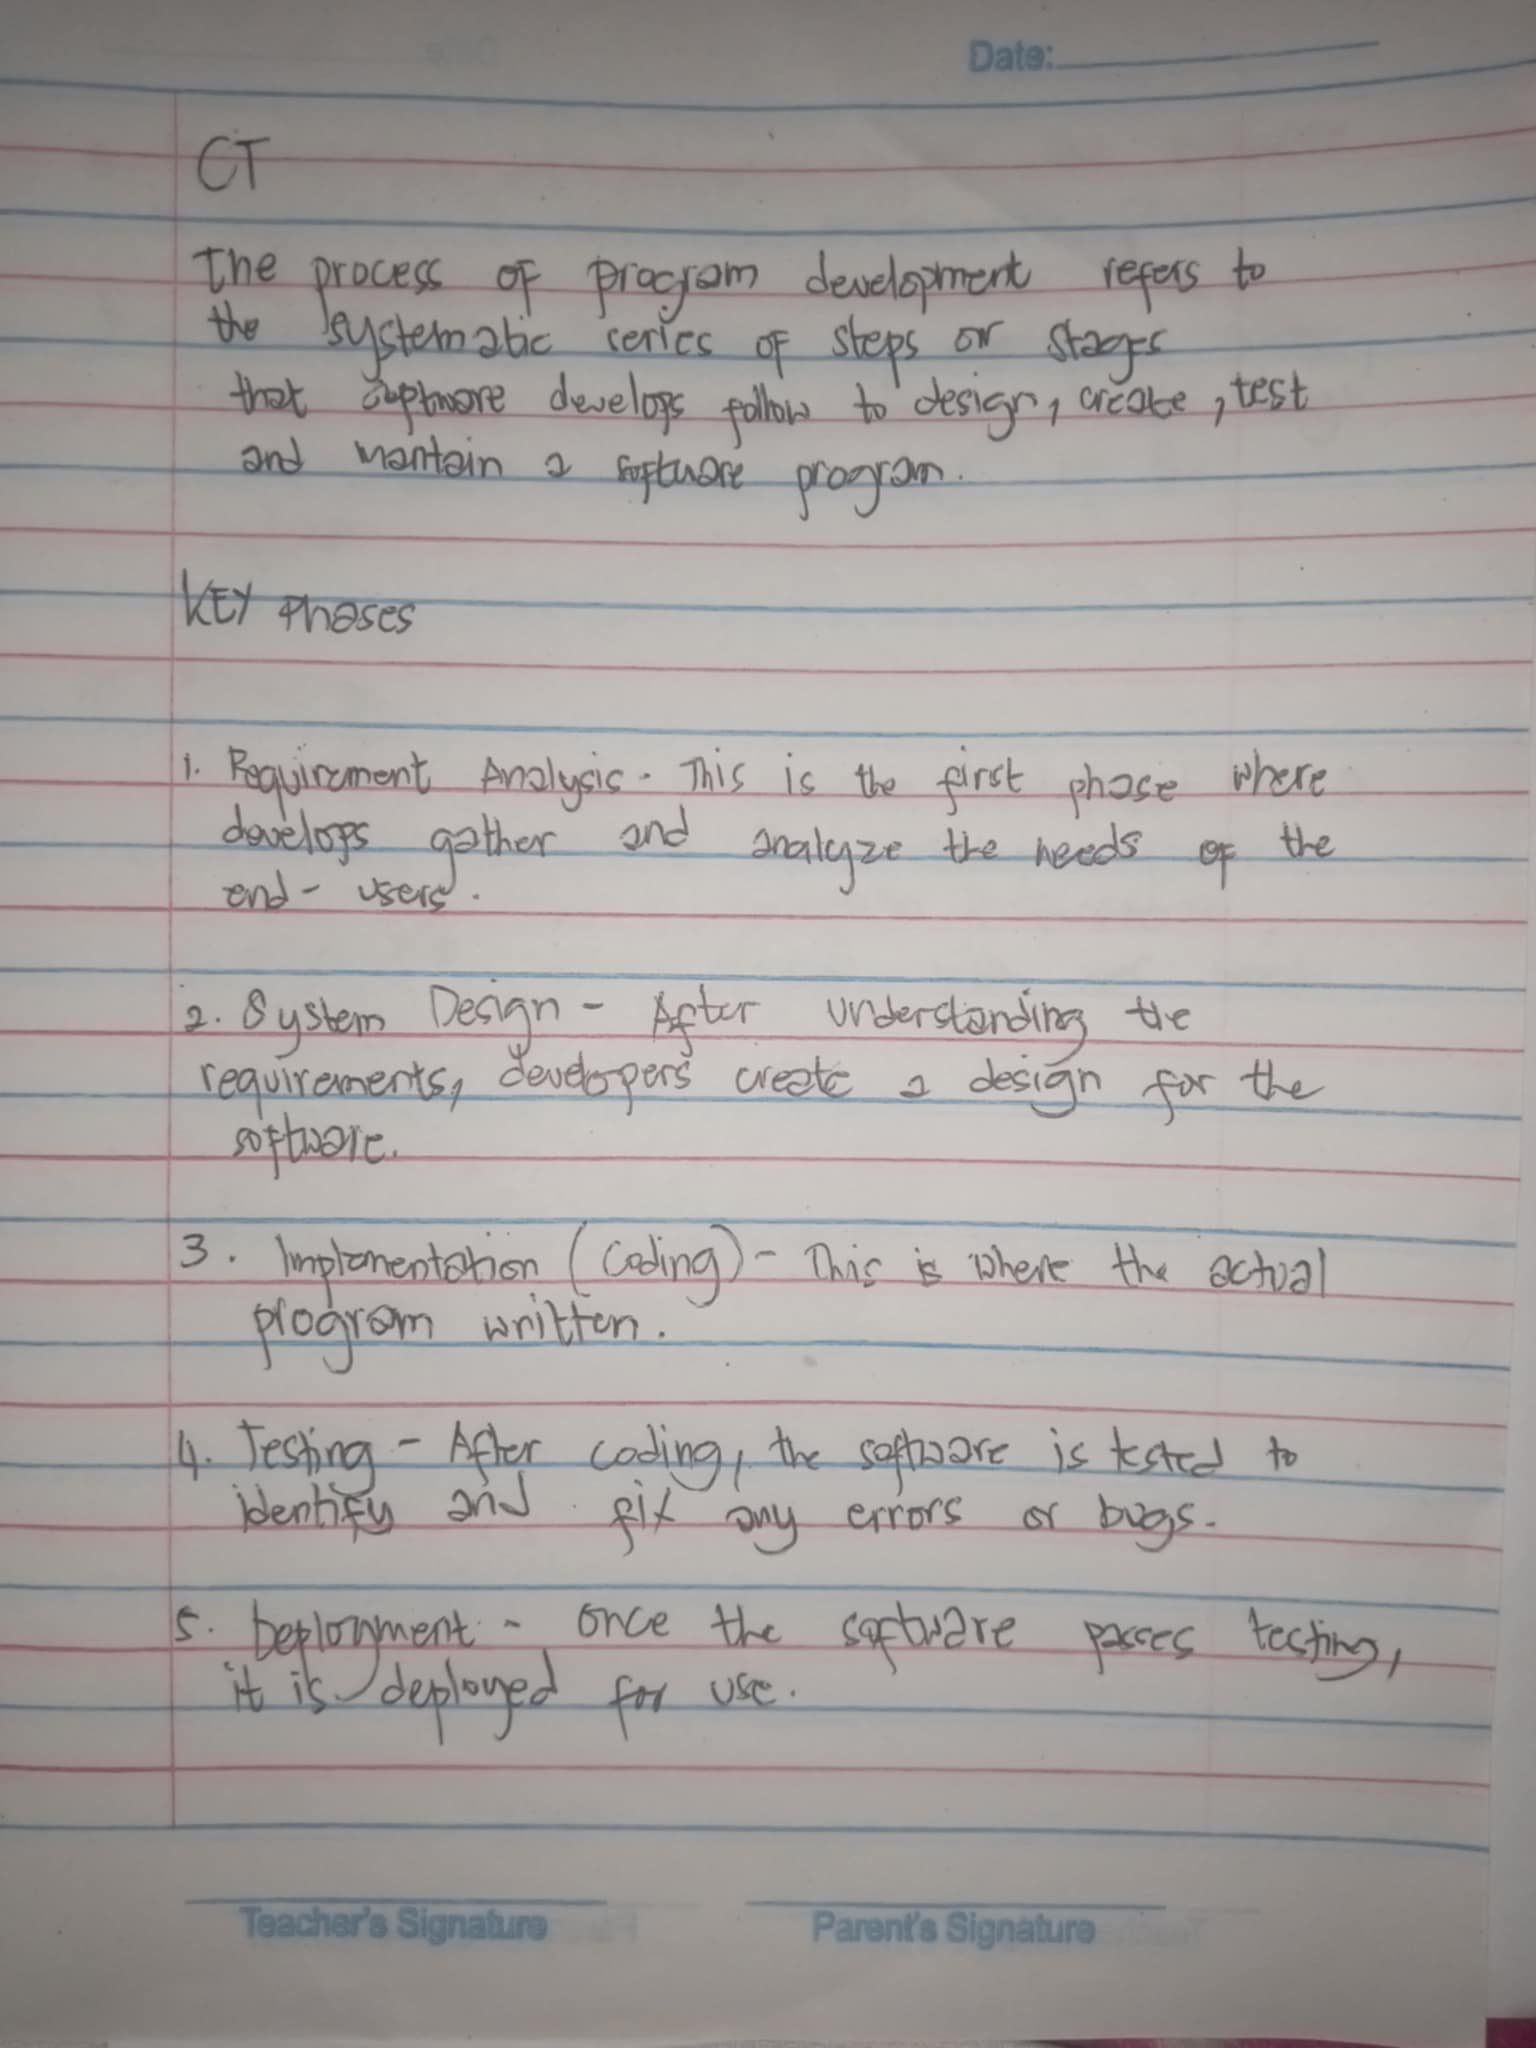 Date:
CT
The process of program development refers to
the systematic series of steps or stages
that software develops follow to design, create, test
and mantain a software program.
KEY Phases
1. Requirement Analysis - This is the first phase where
develops gather and analyze the needs of the
end - users.
2. System Design - After understanding the
requirements, developers create a design for the
software.
3. Implementation (Coding) - This is where the actual
program written.
4. Testing - After coding, the software is tested to
identify and fix any errors or bugs.
5. Deployment - Once the software passes testing,
it is deployed for use.
Teacher's Signature Parent's Signature